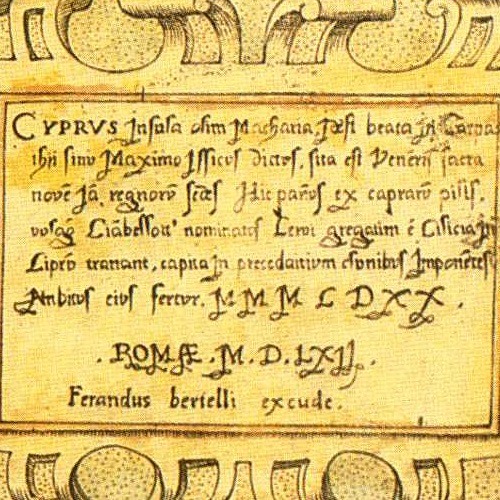 CYPRVS Insula olim Macharia, Idest beata in Carpa
thii sinu Maximo Issicus dictos, sita est Veneris sacra
novē Iā. regnorū sēdes Hic panus ex caprarū pilis,
Ciabellott' nominatos Cervi gregatim ē Cilicia In
Ciprū tranant, capita In precedaitium clunibus Imponētes
Anbitus eius fertur. MMM L DXX.
. ROMÆ . M. D. LXII.
Ferandus bertelli excude.